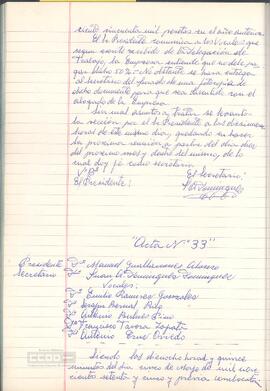 ciento cincuenta mil pesetas en el año anterior.
El Sr. Presidente comunica a los Vocales que
según escrito recibido de la Delegación de
Trabajo, la Empresa entiende que no debe pa-
gar dicho 50%. No obstante se hará entrega
al secretario del Jurado de una fotocopia de
dicho documento para que sea discutido con el
abogado de la Empresa.
Sin mas asuntos a tratar se levanta
la sección por el Sr. Presidente a las diecinueve
horas de este mismo día, quedando en hacer
la próxima reunión a partir del día diez
del próximo mes y dentro del mismo, de lo
cual doy fé como secretario.
Vº Bº El Secretario:
El Presidente:
"Acta Nº 33"
Presidente Dº Manuel Alonso
Secretario Dº Juan A. Dominguez Dominguez
Vocales:
Dº Emilio Ramirez Gonzalez
Dº Bernal Ruiz
Dº Antonio
Dº Francisco Tavora Zapata
Dº Antonio Cruz
Siendo las dieciocho horas y quince
minutos del día nueve de Mayo de mil nove-
cientos setenta y cinco y previa convocatoria
CCOO